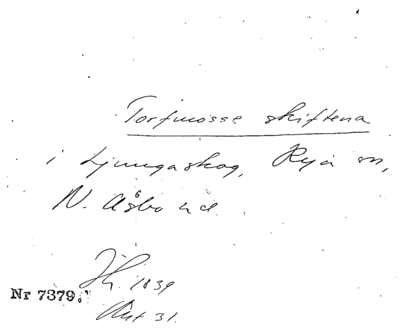 Torfmosse skiftena
i Ljungaskog, Rya sn,
N. Åsbo hd.
Jh. 1839
Nr 7379.
Akt 31.